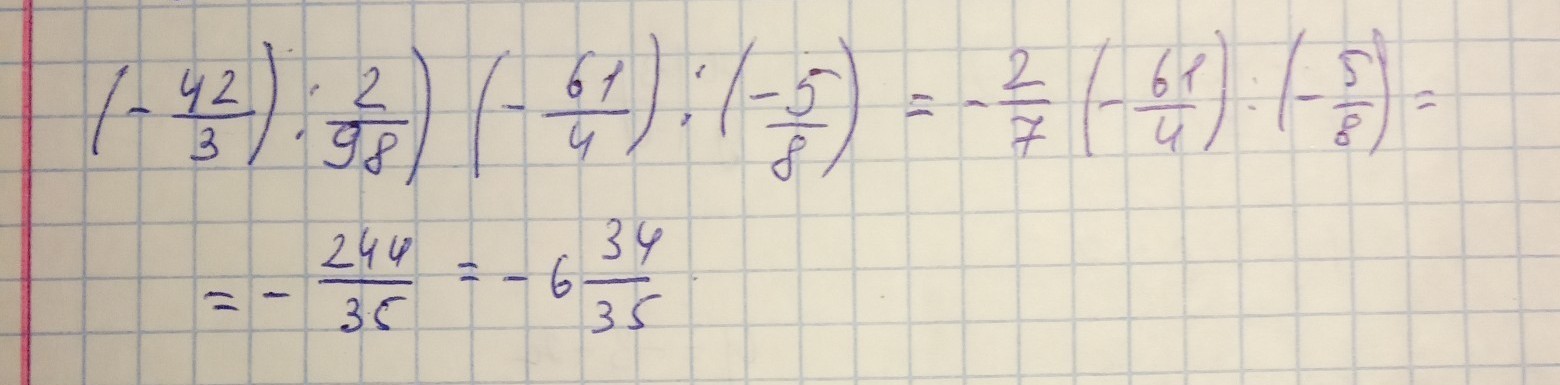 (- 42/3) : 2/98) (- 61/4) : (-5/8) = - 2/7 (- 61/4) : (- 5/8) =
= - 244/35 = - 6 34/35